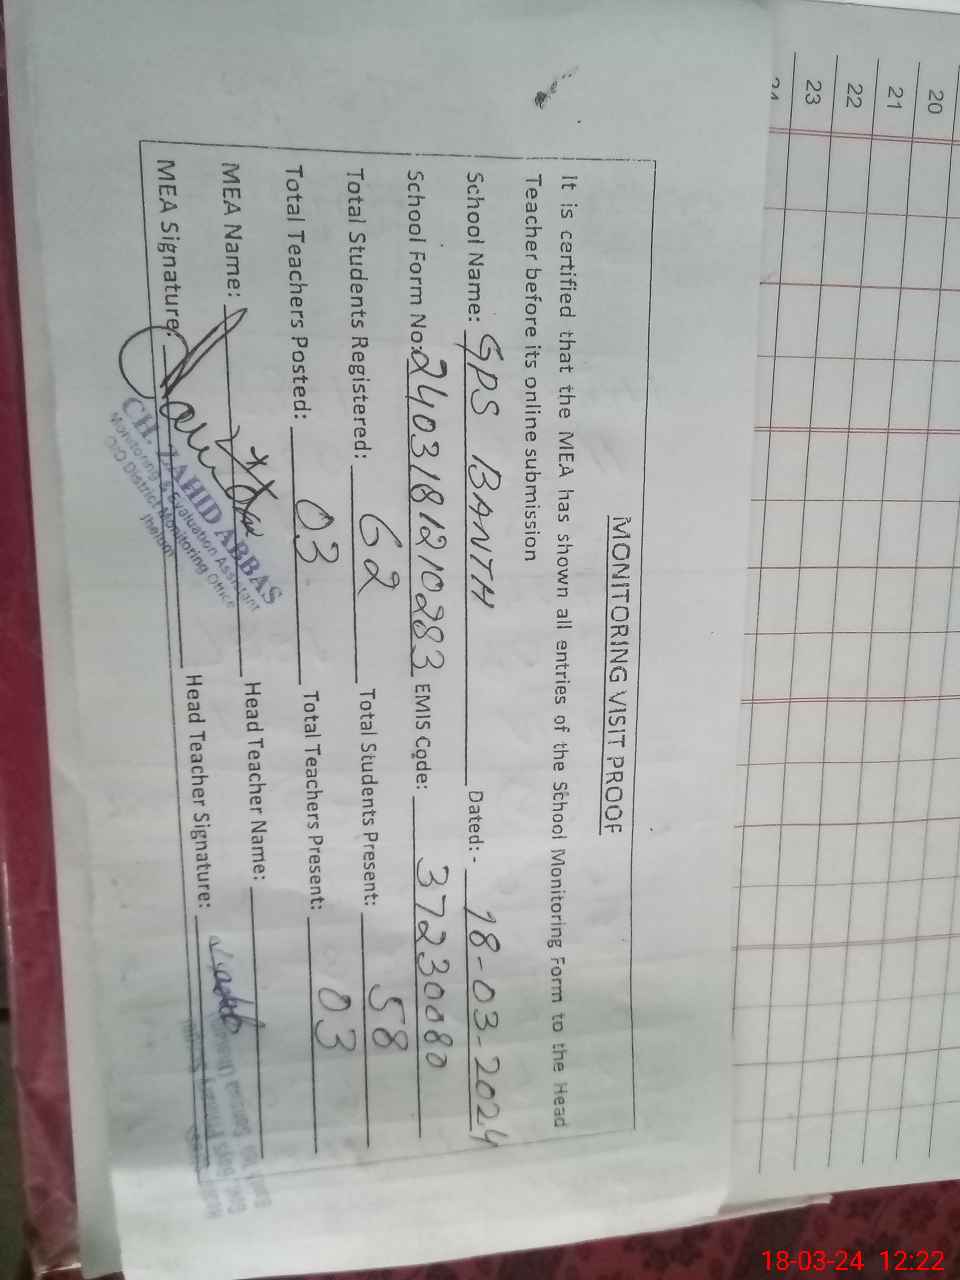 MONITORING VISIT PROOF
It is certified that the MEA has shown all entries of the School Monitoring Form to the Head
Teacher before its online submission
School Name: GPS BANTH Dated:- 18-03-2024
School Form No: 2403181210283 EMIS Code: 37230080
Total Students Registered: 62 Total Students Present: 58
Total Teachers Posted: 03 Total Teachers Present: 03
MEA Name: Head Teacher Name:
MEA Signature: Head Teacher Signature:
CH. ZAHID ABBAS
Monitoring & Evaluation Assistant
O/O District Monitoring Office
Jhelum
20
21
22
23
24
18-03-24 12:22